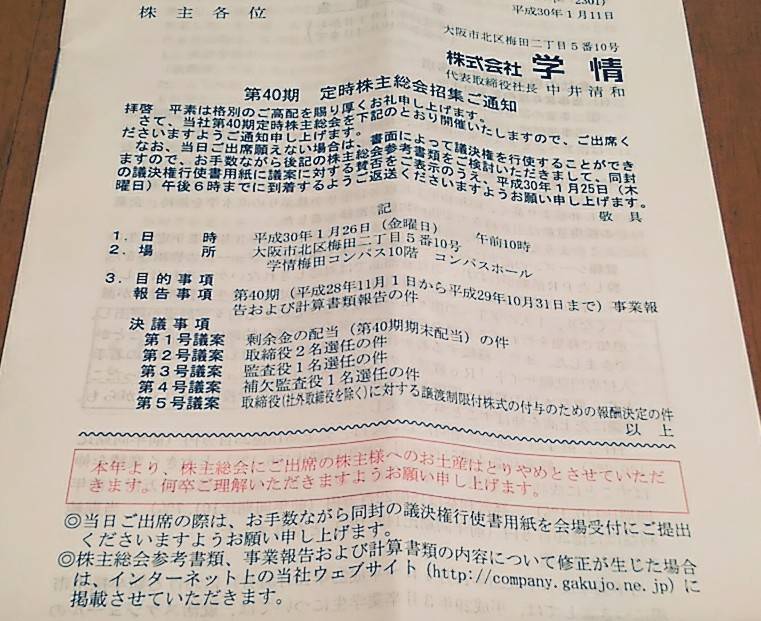 2301)
株主各位
平成30年1月11日
大阪市北区梅田二丁目5番10号
株式会社 学情
代表取締役社長 中井清和
第40期 定時株主総会招集ご通知
拝啓 平素は格別のご高配を賜り厚くお礼申し上げます。
さて、当社第40期定時株主総会を下記のとおり開催いたしますので、ご出席く
ださいますようご通知申し上げます。
なお、当日ご出席願えない場合は、書面によって議決権を行使することができ
ますので、お手数ながら後記の株主総会参考書類をご検討いただきまして、同封
の議決権行使書用紙に議案に対する賛否をご表示のうえ、平成30年1月25日(木
曜日)午後6時までに到着するようご返送くださいますようお願い申し上げます。
敬具
記
1.日時 平成30年1月26日(金曜日) 午前10時
2.場所 大阪市北区梅田二丁目5番10号
学情梅田コンパス10階 コンパスホール
3.目的事項
報告事項 第40期(平成28年11月1日から平成29年10月31日まで)事業報
告および計算書類報告の件
決議事項
第1号議案 剰余金の配当(第40期期末配当)の件
第2号議案 取締役2名選任の件
第3号議案 監査役1名選任の件
第4号議案 補欠監査役1名選任の件
第5号議案 取締役(社外取締役を除く)に対する譲渡制限付株式の付与のための報酬決定の件
以上
本年より、株主総会にご出席の株主様へのお土産はとりやめとさせていただ
きます。何卒ご理解いただきますようお願い申し上げます。
◎当日ご出席の際は、お手数ながら同封の議決権行使書用紙を会場受付にご提出
くださいますようお願い申し上げます。
◎株主総会参考書類、事業報告および計算書類の内容について修正が生じた場合
は、インターネット上の当社ウェブサイト(http://company.gakujo.ne.jp)に
掲載させていただきます。